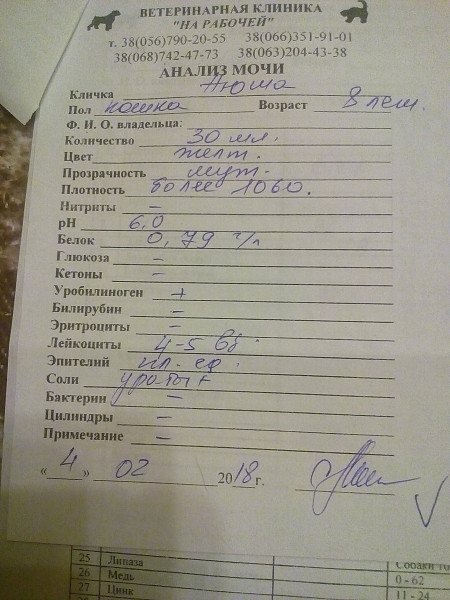 ВЕТЕРИНАРНАЯ КЛИНИКА
"НА РАБОЧЕЙ"
т. 38(056)790-20-55 38(066)351-91-01
38(068)742-47-73 38(063)204-43-38
АНАЛИЗ МОЧИ
Кличка Аюша
Пол кошка Возраст 8 лет.
Ф. И. О. владельца:
Количество 30 мл.
Цвет желт.
Прозрачность мут.
Плотность более 1060.
Нитриты –
pH 6,0
Белок 0,79 г/л
Глюкоза –
Кетоны –
Уробилиноген +
Билирубин –
Эритроциты –
Лейкоциты 4-5 в
Эпителий пл. ед.
Соли ураты +
Бактерии –
Цилиндры –
Примечание –
« 4 » 02 2018 г.
25 Липаза Собаки
26 Медь 0 - 62
27 Цинк 11 - 24